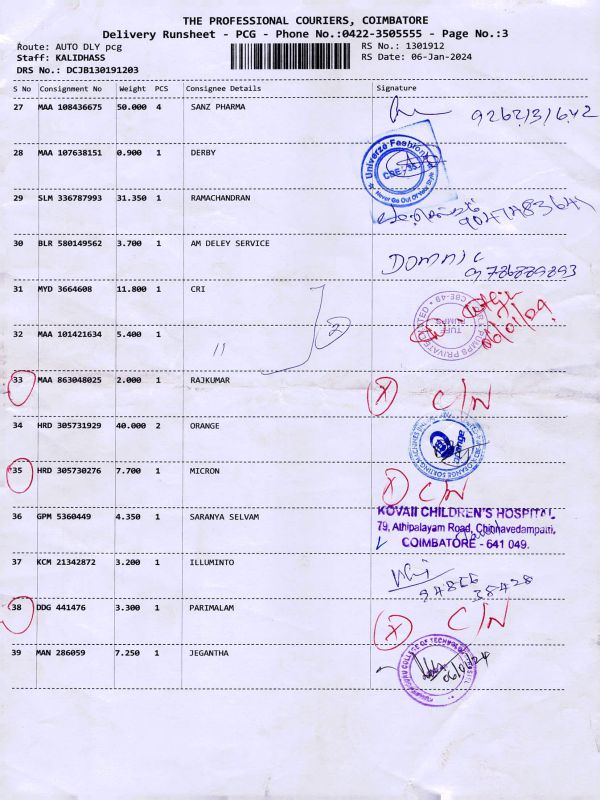 THE PROFESSIONAL COURIERS, COIMBATORE
Delivery Runsheet - PCG - Phone No.:0422-3505555 - Page No.:3
Route: AUTO DLY pcg RS No.: 1301912
Staff: KALIDHASS RS Date: 06-Jan-2024
DRS No.: DCJB130191203
S No Consignment No Weight PCS Consignee Details Signature
27 MAA 108436675 50.000 4 SANZ PHARMA
28 MAA 107638151 0.900 1 DERBY
Univerze Fashions
CBE-35
Never Go Out Of New Style
29 SLM 336787993 31.350 1 RAMACHANDRAN
30 BLR 580149562 3.700 1 AM DELEY SERVICE
DOMNIC
9786889893
31 MYD 3664608 11.800 1 CRI
CBE-49
TUFF PUMPS
PUMPS PRIVATE LIMITED
32 MAA 101421634 5.400 1 11
2
33 MAA 863048025 2.000 1 RAJKUMAR X C/N
34 HRD 305731929 40.000 2 ORANGE
orange
35 HRD 305730276 7.700 1 MICRON X C/N
36 GPM 5360449 4.350 1 SARANYA SELVAM
KOVAII CHILDREN'S HOSPITAL
79, Athipalayam Road, Chinnavedampatti,
COIMBATORE - 641 049.
37 KCM 21342872 3.200 1 ILLUMINTO
94866
38428
38 DDG 441476 3.300 1 PARIMALAM X C/N
39 MAN 286059 7.250 1 JEGANTHA
COLLEGE OF TECHNOLOGY